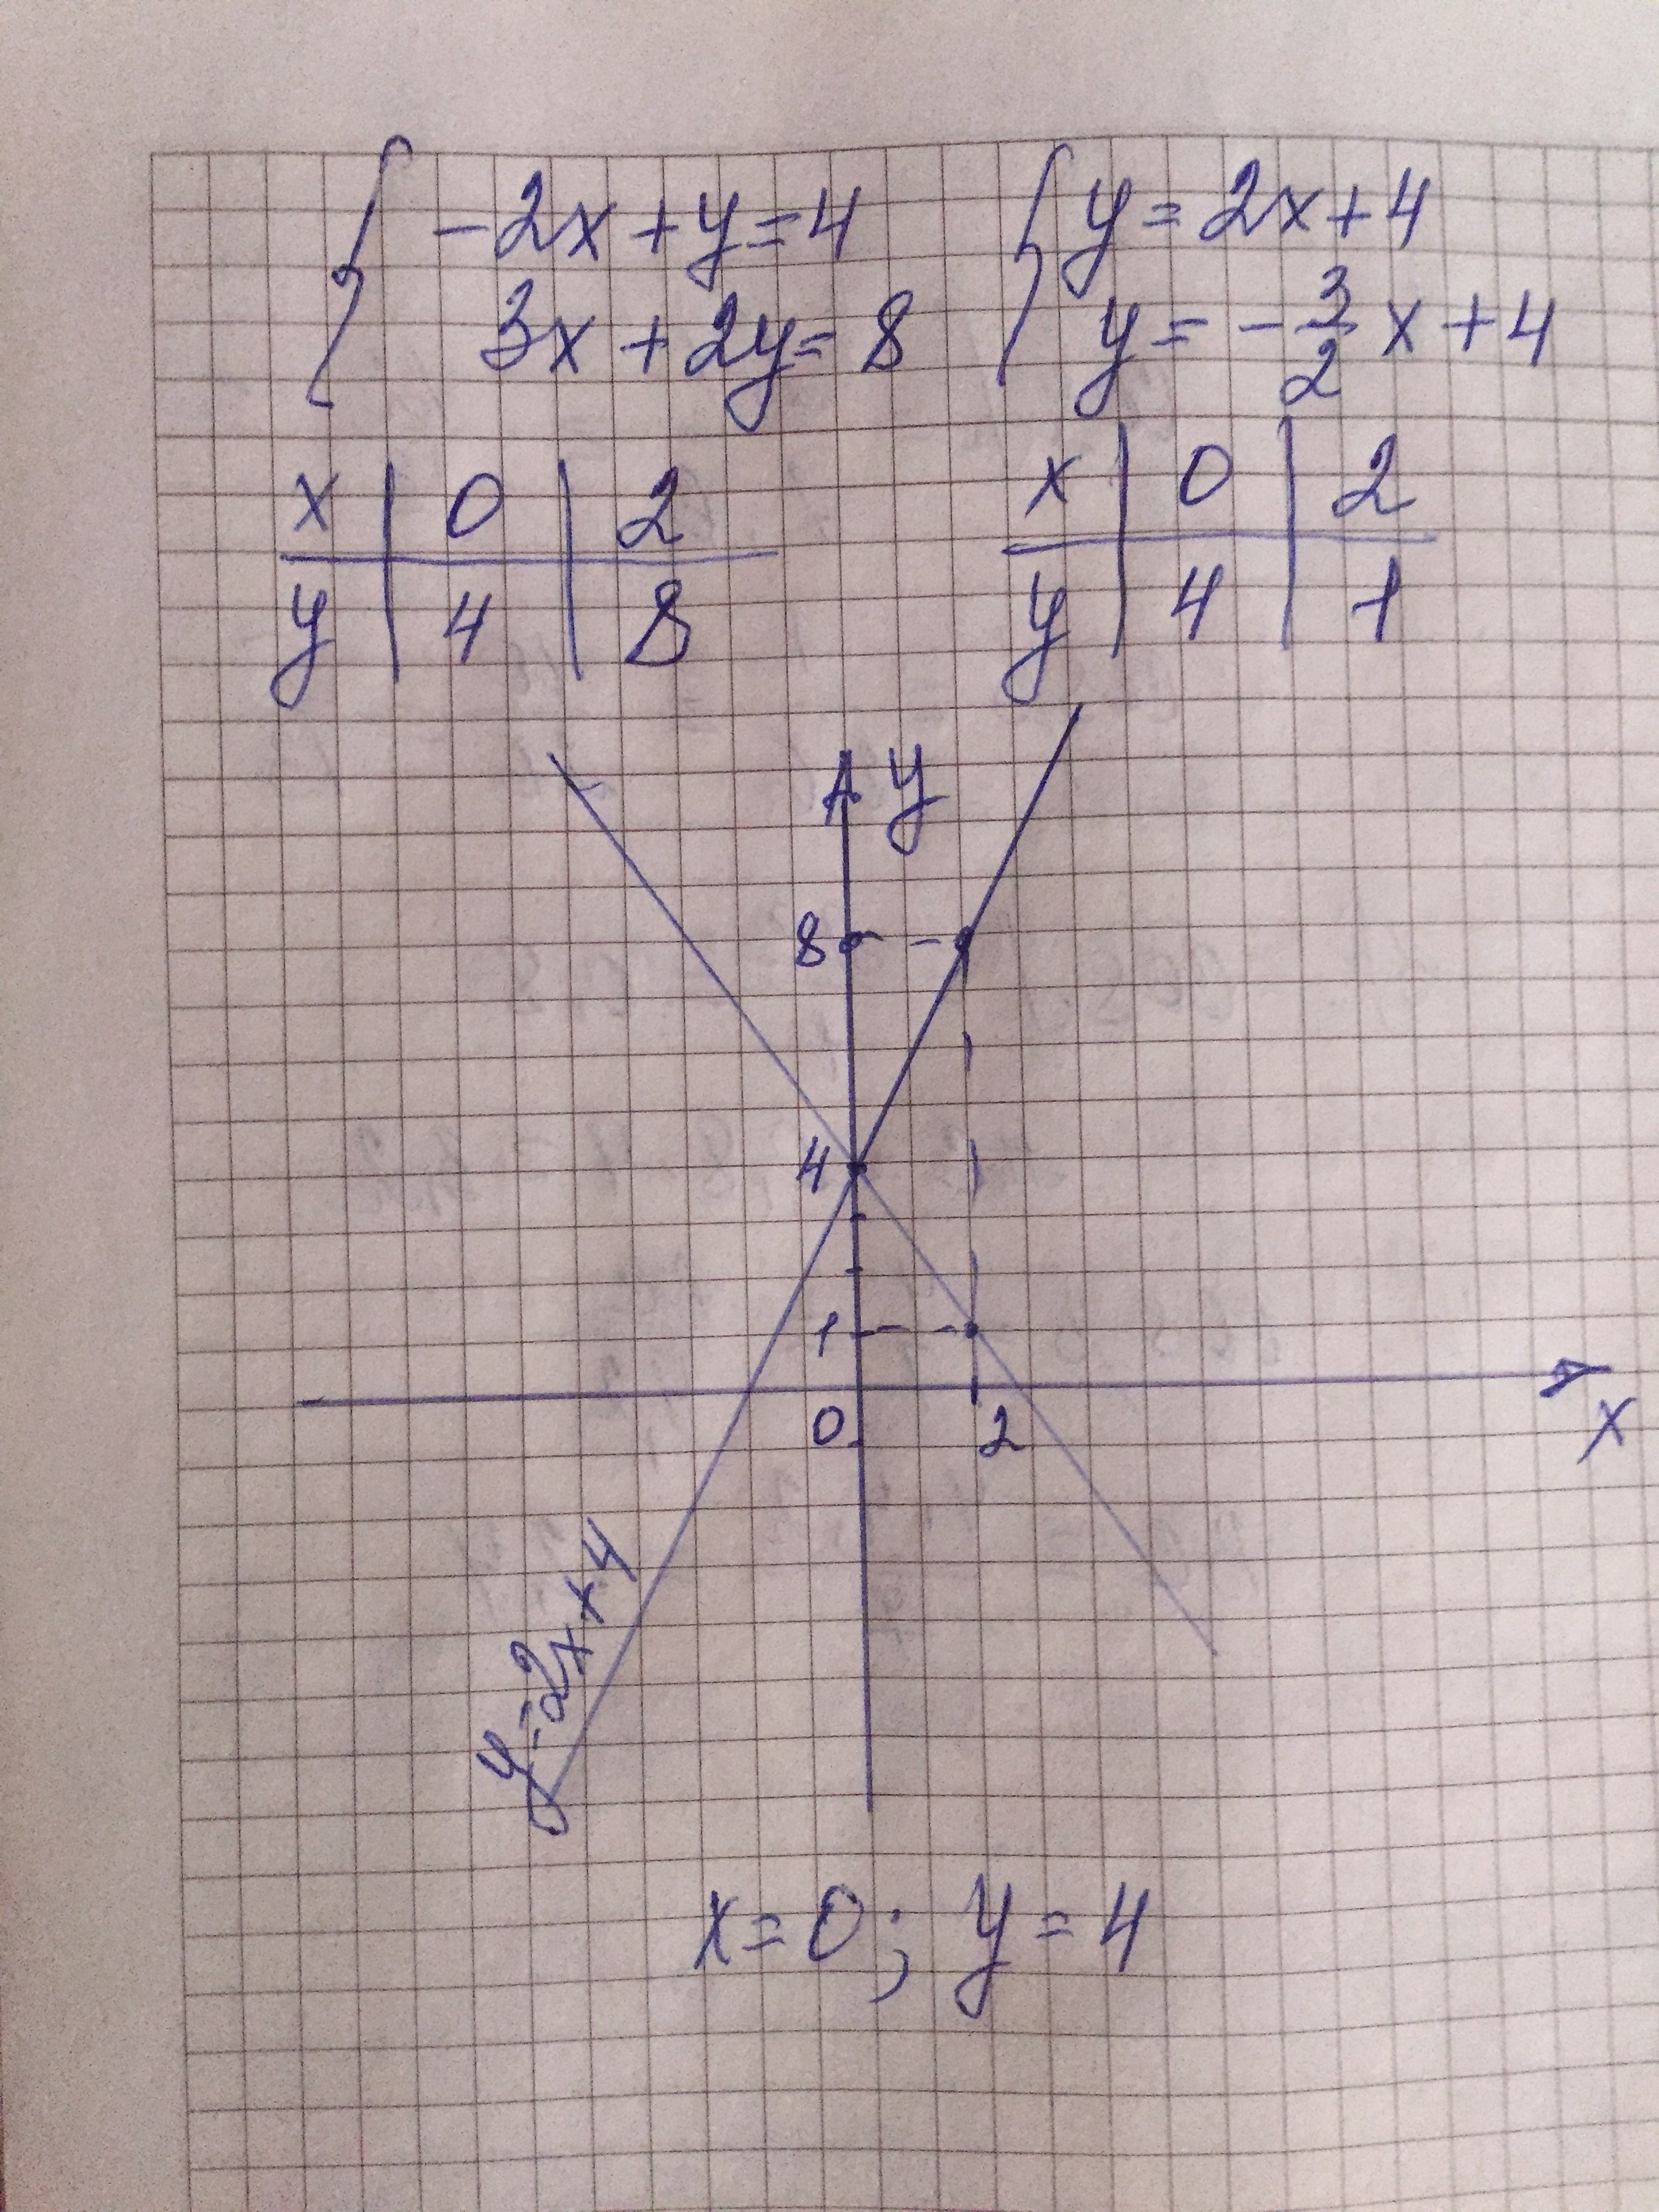 { -2x + y = 4
3x + 2y = 8
{ y = 2x + 4
y = -3/2 x + 4
x | 0 | 2
y | 4 | 8
x | 0 | 2
y | 4 | 1
y
8
4
1
0 2
x
y=2x+4
x = 0; y = 4